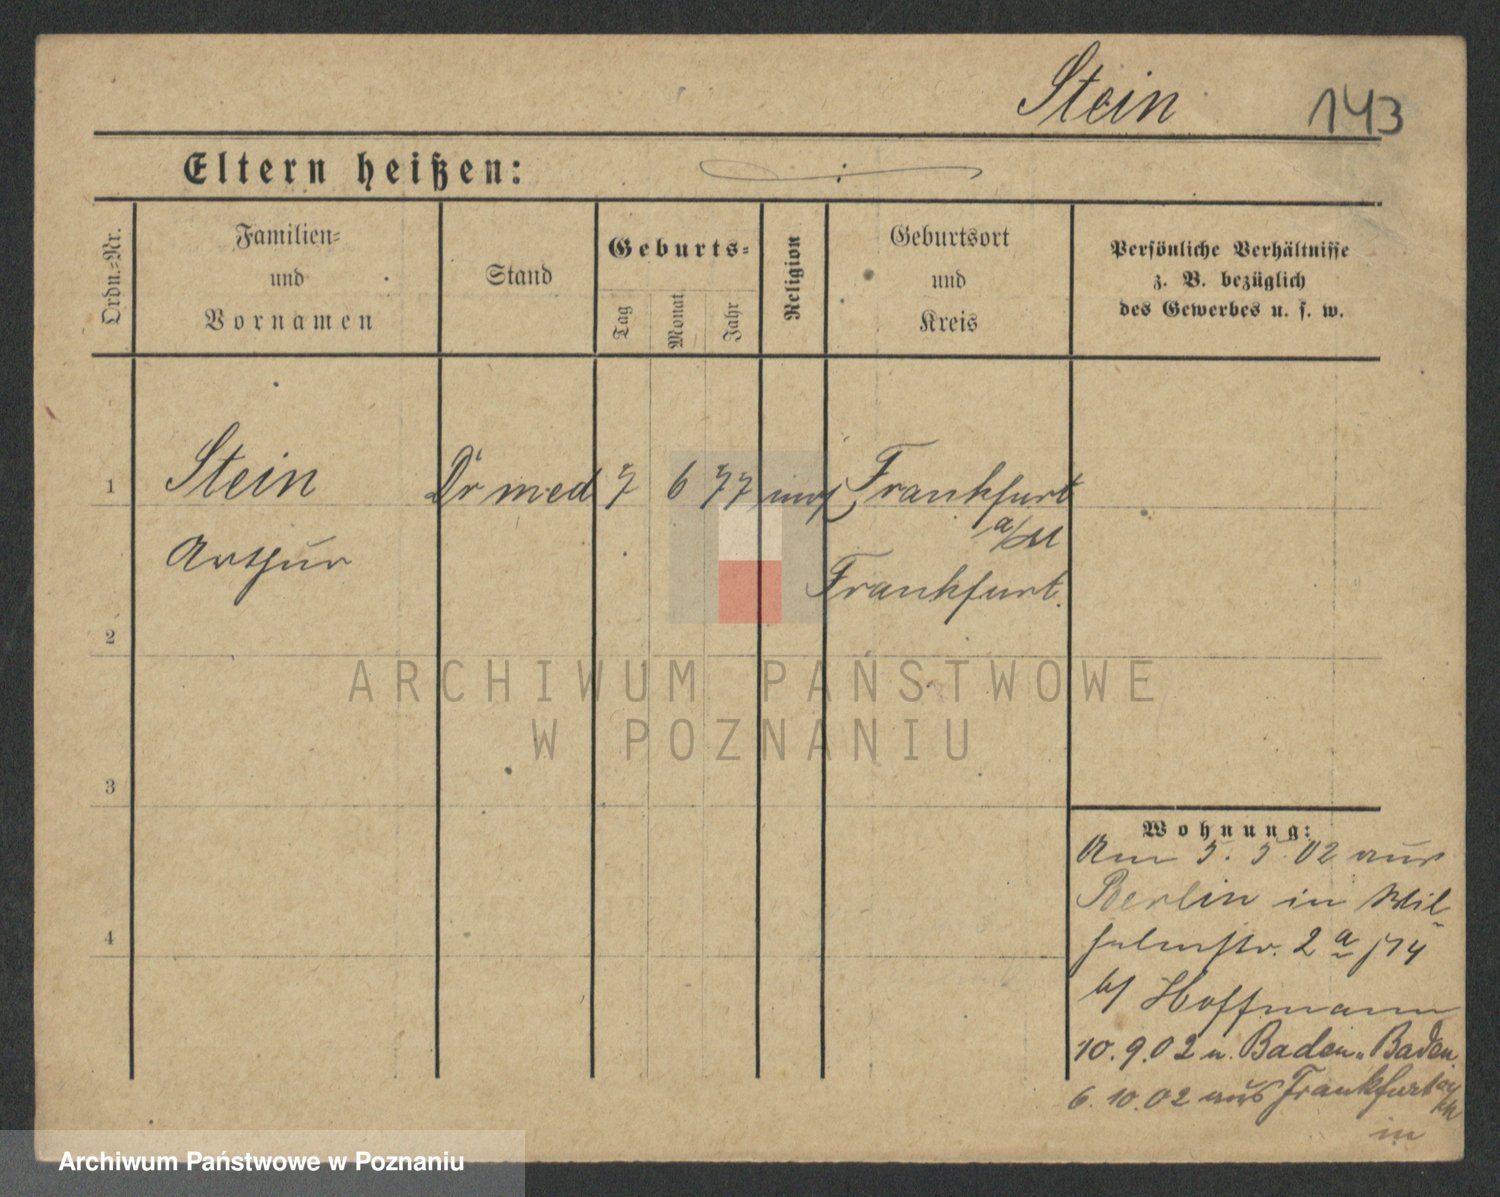 Stein 143
Eltern heißen:
Ordn.=Nr.
Familien=
und
Vornamen
Stand
Geburts=
Tag
Monat
Jahr
Religion
Geburtsort
und
Kreis
Persönliche Verhältnisse
z. B. bezüglich
des Gewerbes u. s. w.
1 Stein Dr med 7 6 77 Frankfurt
a/M
Arthur Frankfurt.
2
3
4
Wohnung:
Am 5. 5. 02 aus
Berlin in Wil-
helmstr. 2 a
b/ Hoffmann
10. 9. 02 n. Baden-Baden
6. 10. 02 aus Frankfurt
in
ARCHIWUM PAŃSTWOWE
W POZNANIU
Archiwum Państwowe w Poznaniu